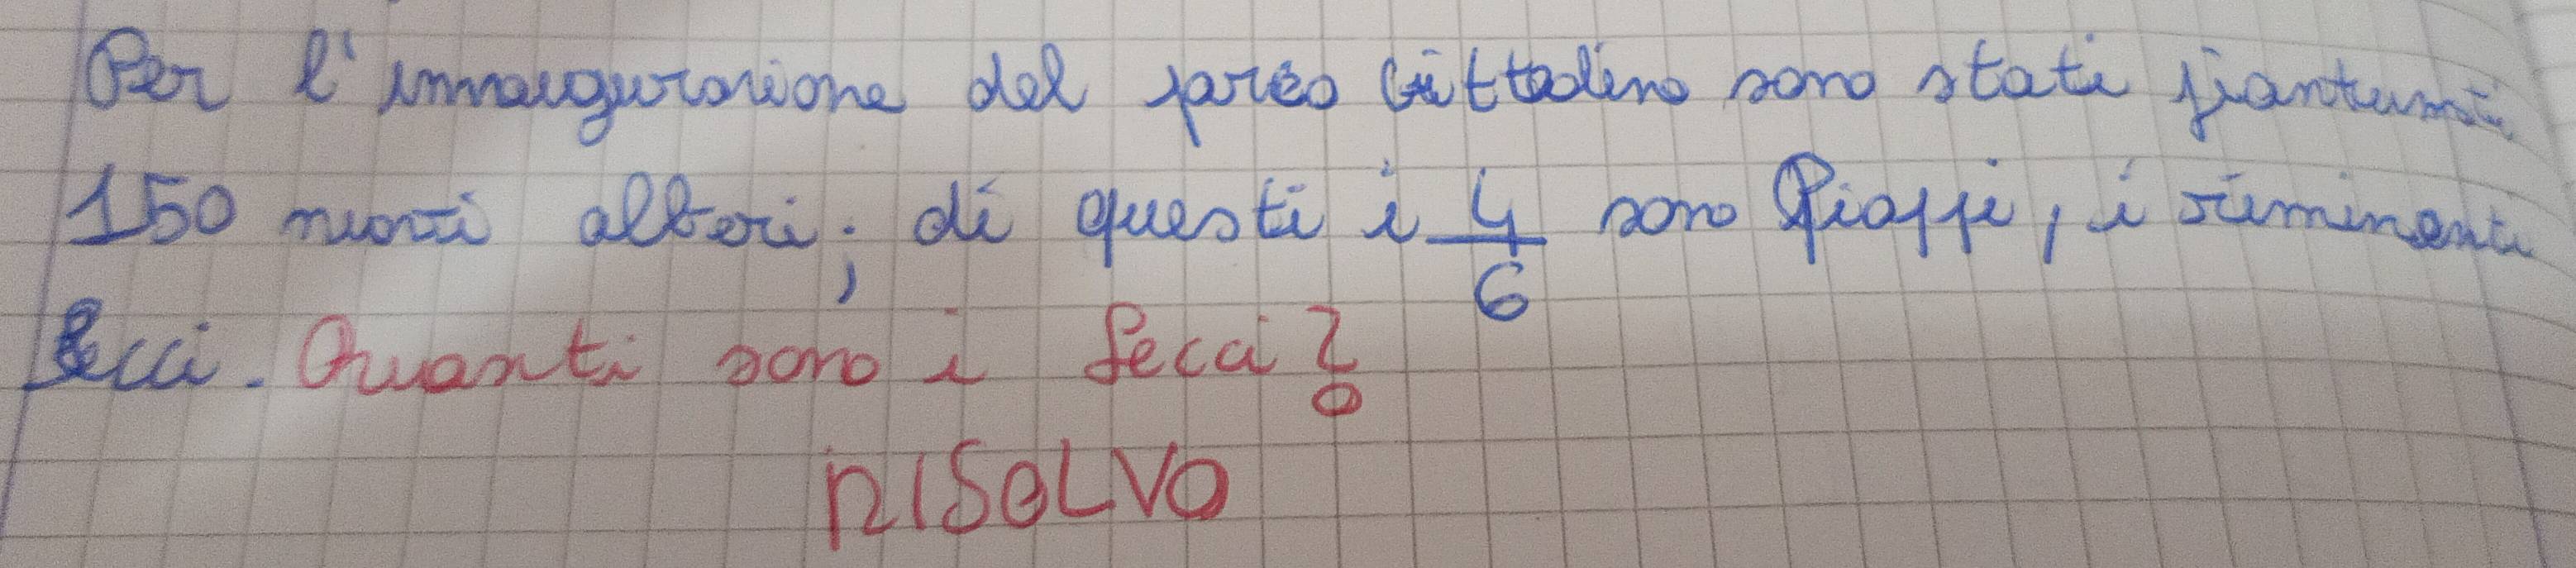 Per l'innaugurazione del parco cittadino sono stati piantumati
150 nuovi alberi; di questi i 4/6 sono Pioppi, i rimanenti
Lecci. Quanti sono i Lecci?
RISOLVO